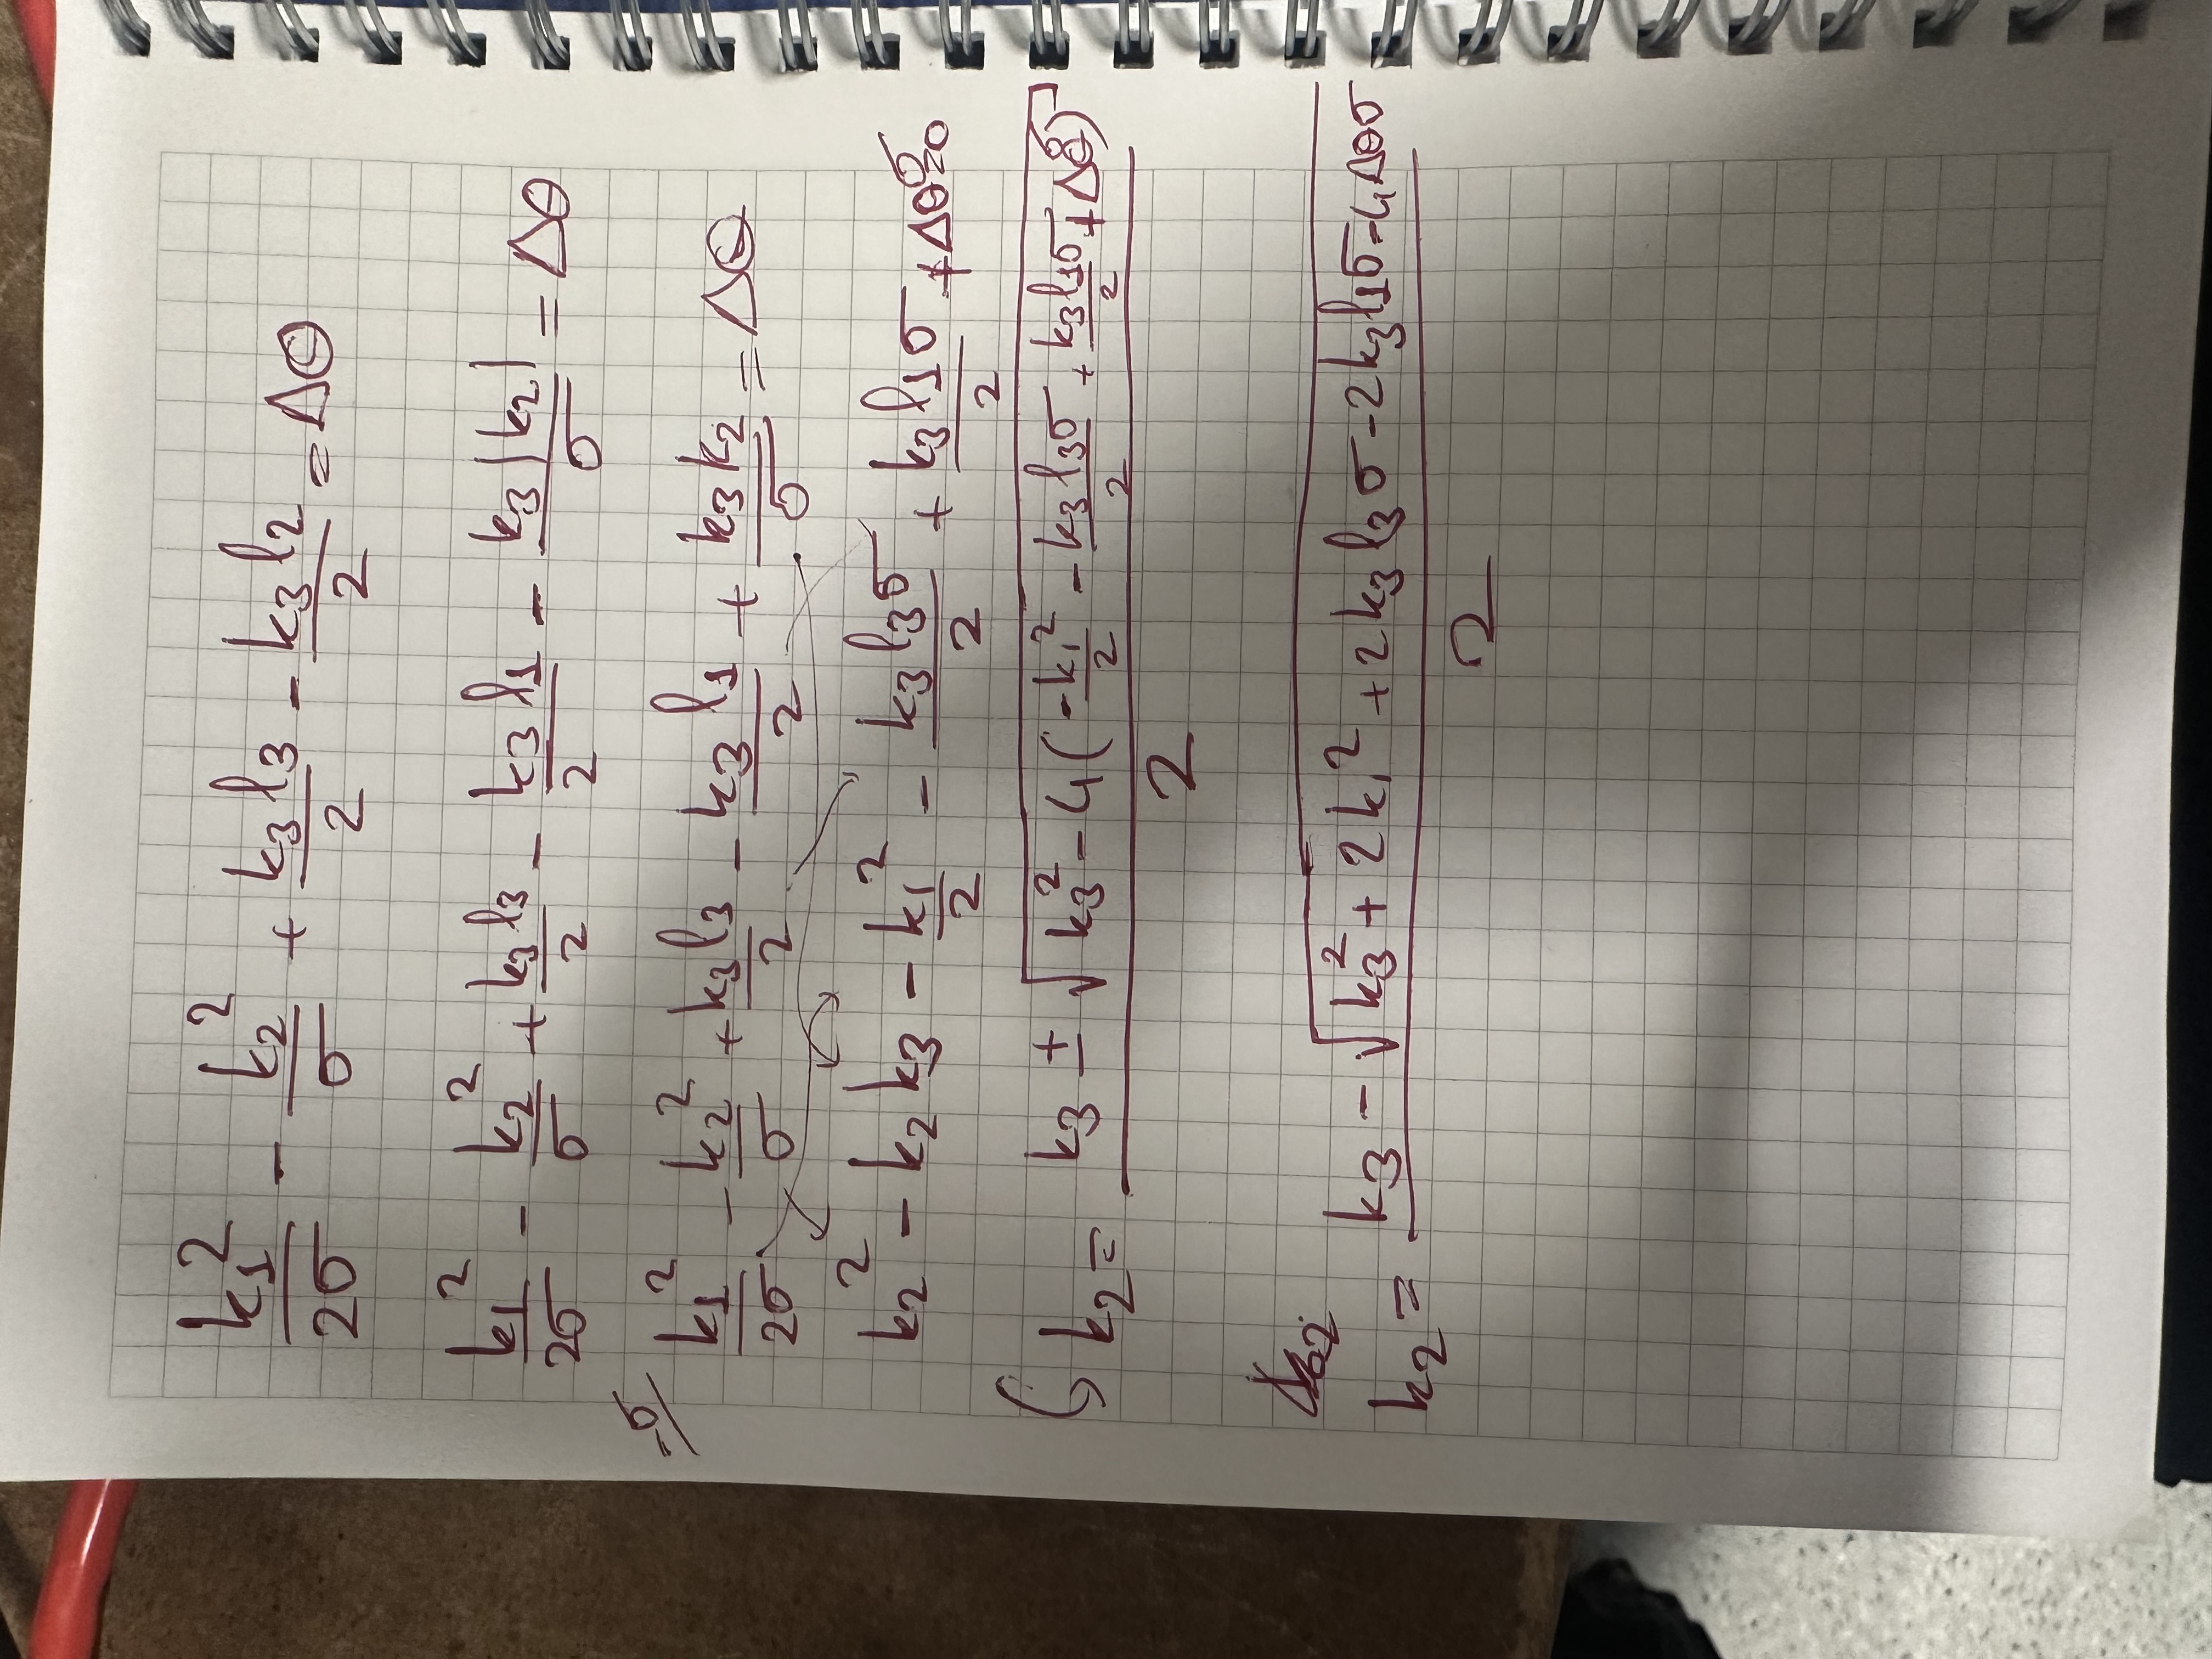 k₁²/2σ - k₂²/σ + k₃l₃/2 - k₃l₂/2 = Δθ
k₁²/2σ - k₂²/σ + k₃l₃/2 - k₃l₁/2 - k₃|k₂|/σ = Δθ
-σ// k₁²/2σ - k₂²/σ + k₃l₃/2 - k₃l₁/2 + k₃k₂/σ = Δθ
k₂² - k₂k₃ - k₁²/2 - k₃l₃σ/2 + k₃l₁σ/2 + Δθσ=0
k₂ = (k₃ ± √(k₃² - 4(-k₁²/2 - k₃l₃σ/2 + k₃l₁σ/2 + Δθσ)))/2
k₂ = (k₃ - √(k₃² + 2k₁² + 2k₃l₃σ - 2k₃l₁σ - 4Δθσ))/2